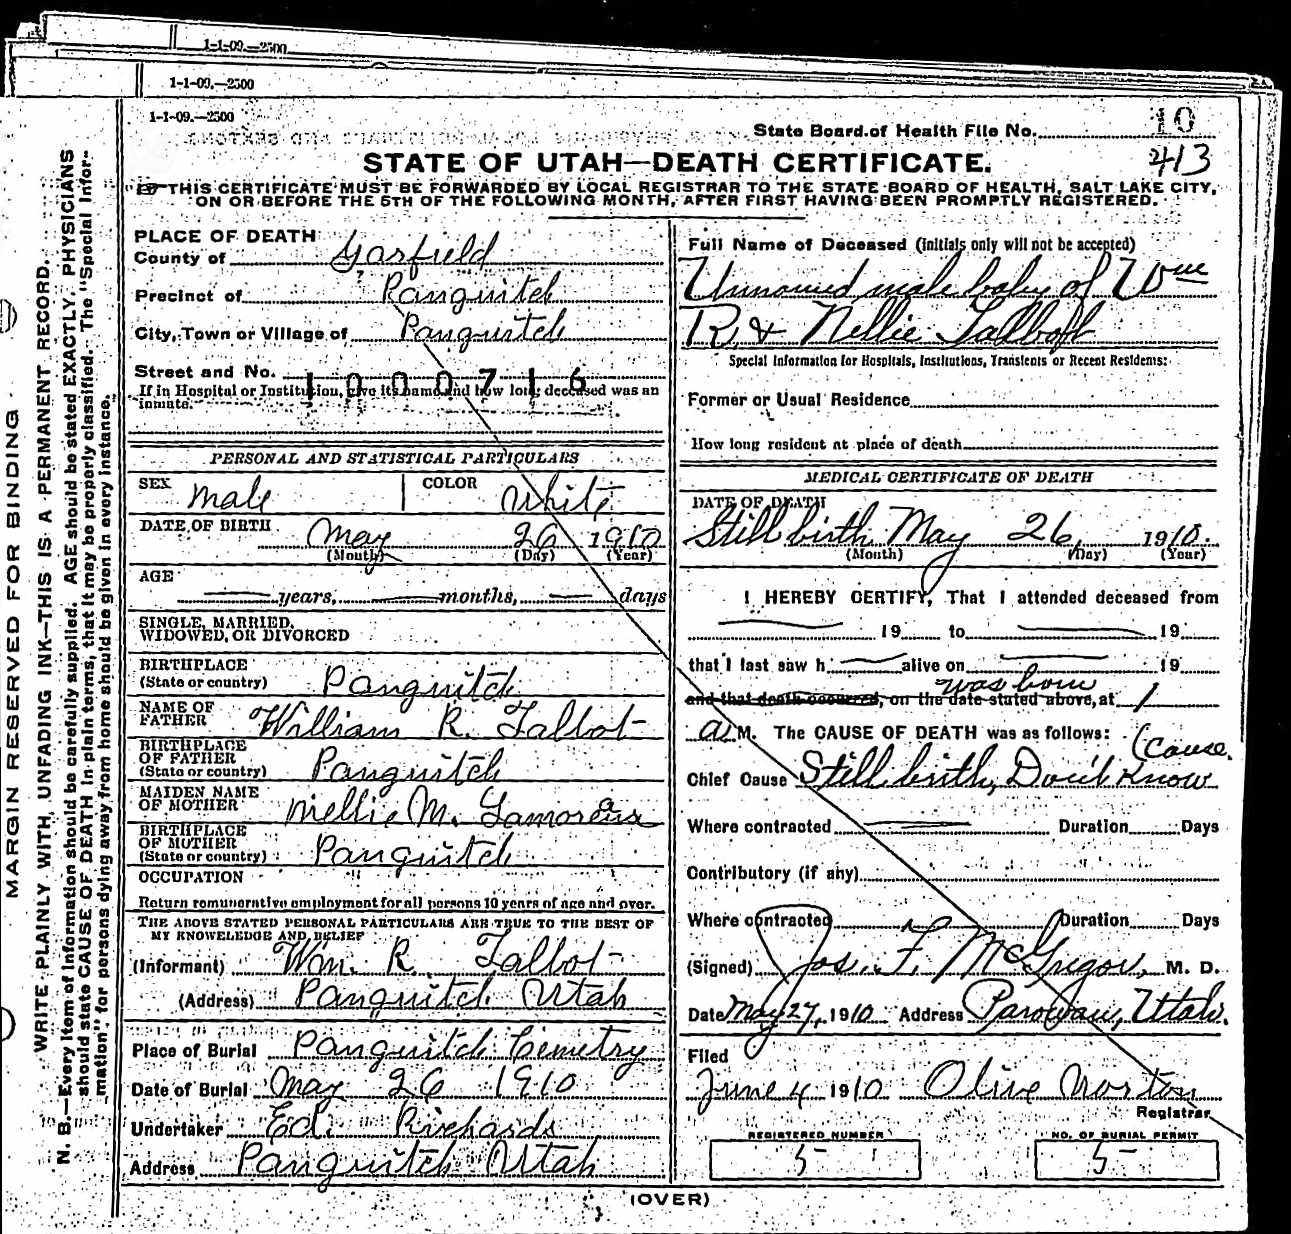 1-1-09.—2500
1-1-09.—2500
1-1-09.—2500
State Board of Health File No. 10
413
STATE OF UTAH—DEATH CERTIFICATE.
THIS CERTIFICATE MUST BE FORWARDED BY LOCAL REGISTRAR TO THE STATE BOARD OF HEALTH, SALT LAKE CITY,
ON OR BEFORE THE 5TH OF THE FOLLOWING MONTH, AFTER FIRST HAVING BEEN PROMPTLY REGISTERED.
MARGIN RESERVED FOR BINDING
WRITE PLAINLY WITH UNFADING INK—THIS IS A PERMANENT RECORD.
N. B.—Every item of information should be carefully supplied. AGE should be stated EXACTLY. PHYSICIANS
should state CAUSE OF DEATH in plain terms, that it may be properly classified. The "Special Infor-
mation" for persons dying away from home should be given in every instance.
PLACE OF DEATH
County of Garfield
Precinct of Panguitch
City, Town or Village of Panguitch
Street and No.
1000716
If in Hospital or Institution, give its name and how long deceased was an
inmate.
PERSONAL AND STATISTICAL PARTICULARS
SEX Male COLOR White
DATE OF BIRTH May 26 1910
(Month) (Day) (Year)
AGE
— years, — months, — days
SINGLE, MARRIED,
WIDOWED, OR DIVORCED
BIRTHPLACE
(State or country) Panguitch
NAME OF
FATHER William R. Talbot
BIRTHPLACE
OF FATHER
(State or country) Panguitch
MAIDEN NAME
OF MOTHER Nellie M. Lamoreau
BIRTHPLACE
OF MOTHER
(State or country) Panguitch
OCCUPATION
Return remunerative employment for all persons 10 years of age and over.
THE ABOVE STATED PERSONAL PARTICULARS ARE TRUE TO THE BEST OF
MY KNOWELEDGE AND BELIEF
(Informant) Wm. R. Talbot
(Address) Panguitch Utah
Place of Burial Panguitch Cemetry
Date of Burial May 26 1910
Undertaker Ed. Richards
Address Panguitch Utah
Full Name of Deceased (initials only will not be accepted)
Unnamed male baby of Wm
R. & Nellie Talbott
Special Information for Hospitals, Institutions, Transients or Recent Residents:
Former or Usual Residence
How long resident at place of death
MEDICAL CERTIFICATE OF DEATH
DATE OF DEATH
Still birth May 26, 1910.
(Month) (Day) (Year)
I HEREBY CERTIFY, That I attended deceased from
— 19 to — 19
that I last saw h — alive on — 19
was born
and that death occurred, on the date stated above, at 1
a. M. The CAUSE OF DEATH was as follows:
(cause.
Chief Cause Still birth, Don't Know
Where contracted — Duration Days
Contributory (if any)
Where contracted Duration Days
(Signed) Jos. F. McGregor, M. D.
Date May 27, 1910 Address Parowan, Utah.
Filed
June 4 1910 Olive Norton
Registrar
REGISTERED NUMBER
5
NO. OF BURIAL PERMIT
5
(OVER)